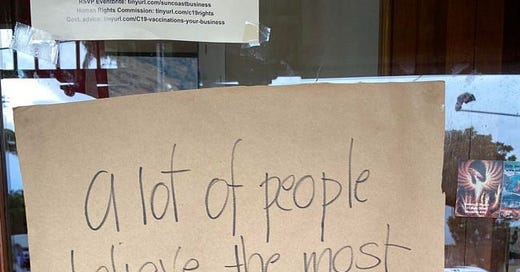 RSVP Eventbrite: tinyurl.com/suncoastbusiness
Human Rights Commission: tinyurl.com/c19rights
Govt. advice: tinyurl.com/C19-vaccinations-your-business
a lot of people
believe the most